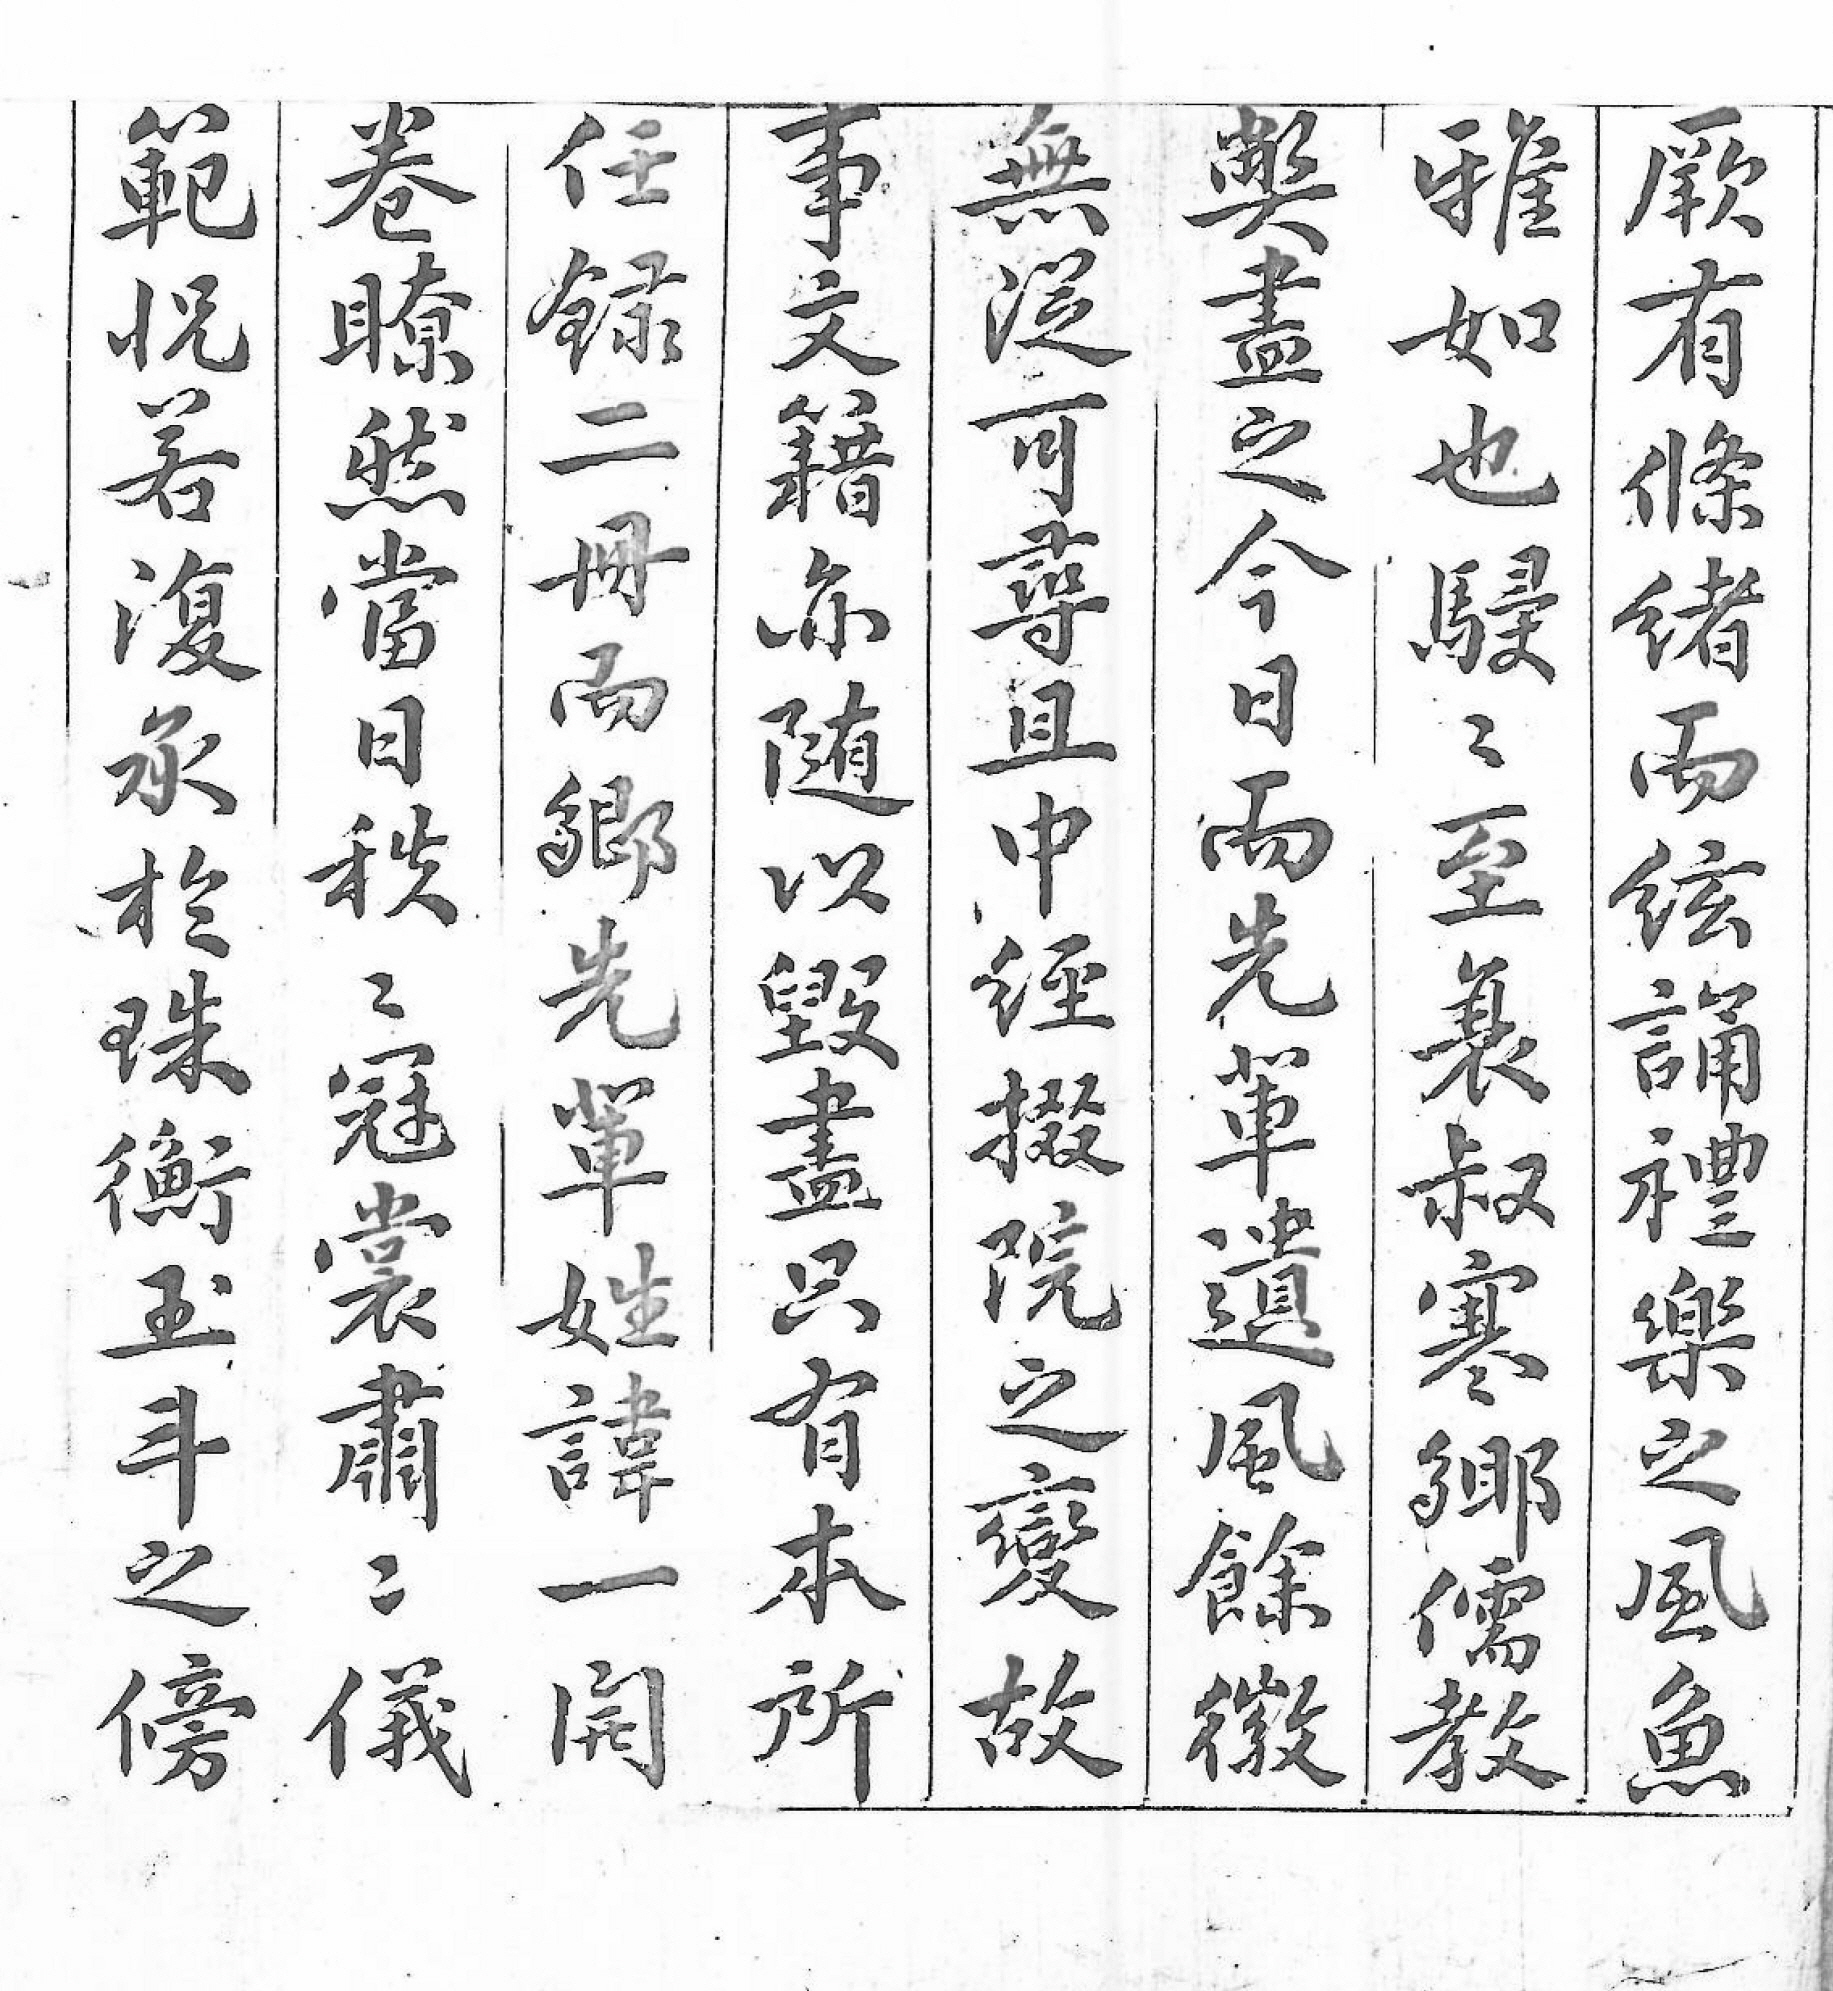 厥有條緖而絃誦禮樂之風魚
雅如也駸〻至衰叔寒鄉儒敎
獘盡之今日而先軰遺風餘徽
無從可尋且中經掇院之變故
事文籍亦随以毀盡只有本所
任録二冊而鄉先軰姓諱一開
卷瞭然當日秩〻冠裳肅〻儀
範怳若復承於珠衡玉斗之傍